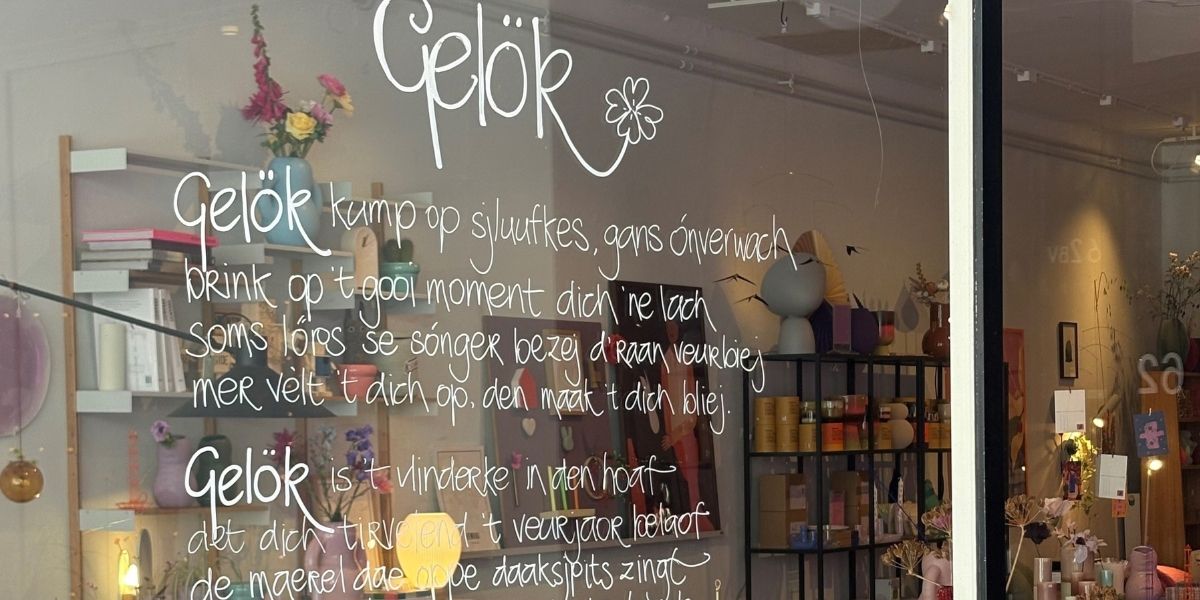 Gelök
Gelök kump op sjluufkes, gans ónverwach
brink op 't gooi moment dich 'ne lach
soms lôps se sónger bezej d'raan veurbiej
mer vèlt 't dich op, den maak 't dich bliej.
Gelök is 't vlinderke in den hoaf
det dich tirvelend 't veurjaor belaof
de maerel dae oppe daaksjpits zingt
62av
62